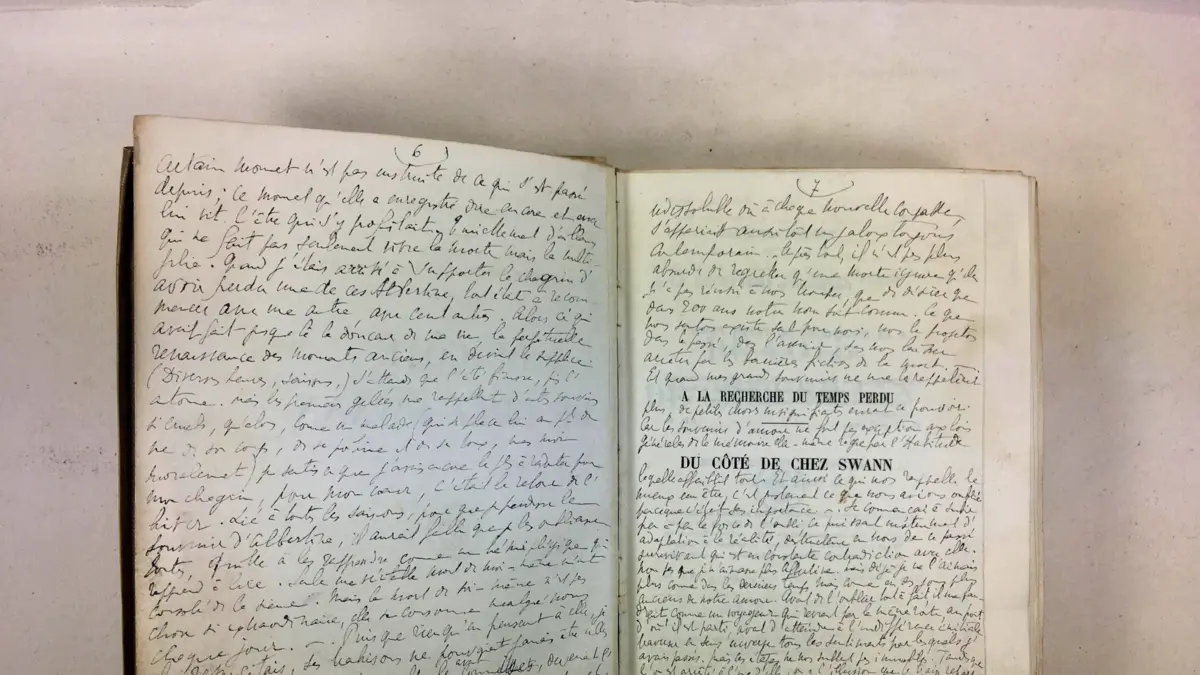 6
certain moment n'est pas instruite de ce qui s'est passé
depuis; ce moment qu'elle a enregistré dure encore et encore
lui vit, l'être qui s'y profilait. Émiettement d'ailleurs
qui ne fait pas seulement vivre la morte mais la multi-
plie. Quand j'étais arrivé à supporter le chagrin d'
avoir perdu une de ces Albertine, tout était à recom-
mencer avec une autre avec cent autres. Alors ce qui
avait fait jusque là la douceur de ma vie, la perpétuelle
renaissance des moments anciens, en devint le supplice
(Diverses heures, saisons,) J'attends que l'été finisse, puis l'
automne. Mais les premières gelées me rappellent d'autres souvenirs
si cruels, qu'alors, comme un malade (qui se place lui au pt de
vue de son corps, de sa poitrine et de sa toux, mais moi
moralement) je sentis ce que j'avais encore le plus à redouter pour
mon chagrin, pour mon coeur, c'était le retour de l'
hiver. Lié à toutes les saisons, pour que je perdisse le
souvenir d'Albertine, il aurait fallu que je les oubliasse
toutes, quitte à les réapprendre comme un hémiplégique qui
rapprend à lire. Seule ma véritable mort de moi-même m'eût
consolé de la sienne. Mais la mort de soi-même n'est pas
chose si extraordinaire, elle se consomme malgré nous
chaque jour. — Puisque rien qu'en pensant à elle, je
ses trahisons ne pouvaient jamais être celles
7
indissoluble où à chaque nouvelle coupable,
s'appariait aussitôt un jaloux toujours
contemporain. Après tout, il n'est pas plus
absurde de regretter qu'une morte ignore qu'elle
n'a pas réussi à nous tromper, que de désirer que
dans 200 ans notre nom soit connu. Ce que
nous sentons existe seul pour nous, nous le projetons
dans le passé, dans l'avenir, sans nous laisser
arrêter par les barrières fictives de la mort. —
Et quand mes grands souvenirs ne me la rappelèrent
A LA RECHERCHE DU TEMPS PERDU
plus, de petites choses insignifiantes eurent ce pouvoir.
Car les souvenirs d'amour ne font pas exception aux lois
générales de la mémoire elle-même régie par l'Habitude
DU CÔTÉ DE CHEZ SWANN
laquelle affaiblit tout. Et ainsi ce qui nous rappelle le
mieux un être, c'est justement ce que nous avions oublié
parce que c'était sans importance. Je commençai à subir
peu à peu la force de l'oubli ce puissant instrument d'
adaptation à la réalité, destructeur en nous de ce passé
survivant qui est en constante contradiction avec elle.
Non pas que je n'aimasse plus Albertine. Mais déjà je ne l'aimais
plus comme dans les derniers temps mais comme en des jours plus
anciens de notre amour. Avant de l'oublier tout à fait il me fallait
comme un voyageur qui revient par la même route au point
d'où il est parti, avant d'atteindre à l'indifférence initiale
traverser en sens inverse tous les sentiments par lesquels j'
avais passé. Mais les étapes ne nous semblent pas immobiles. Tandis que